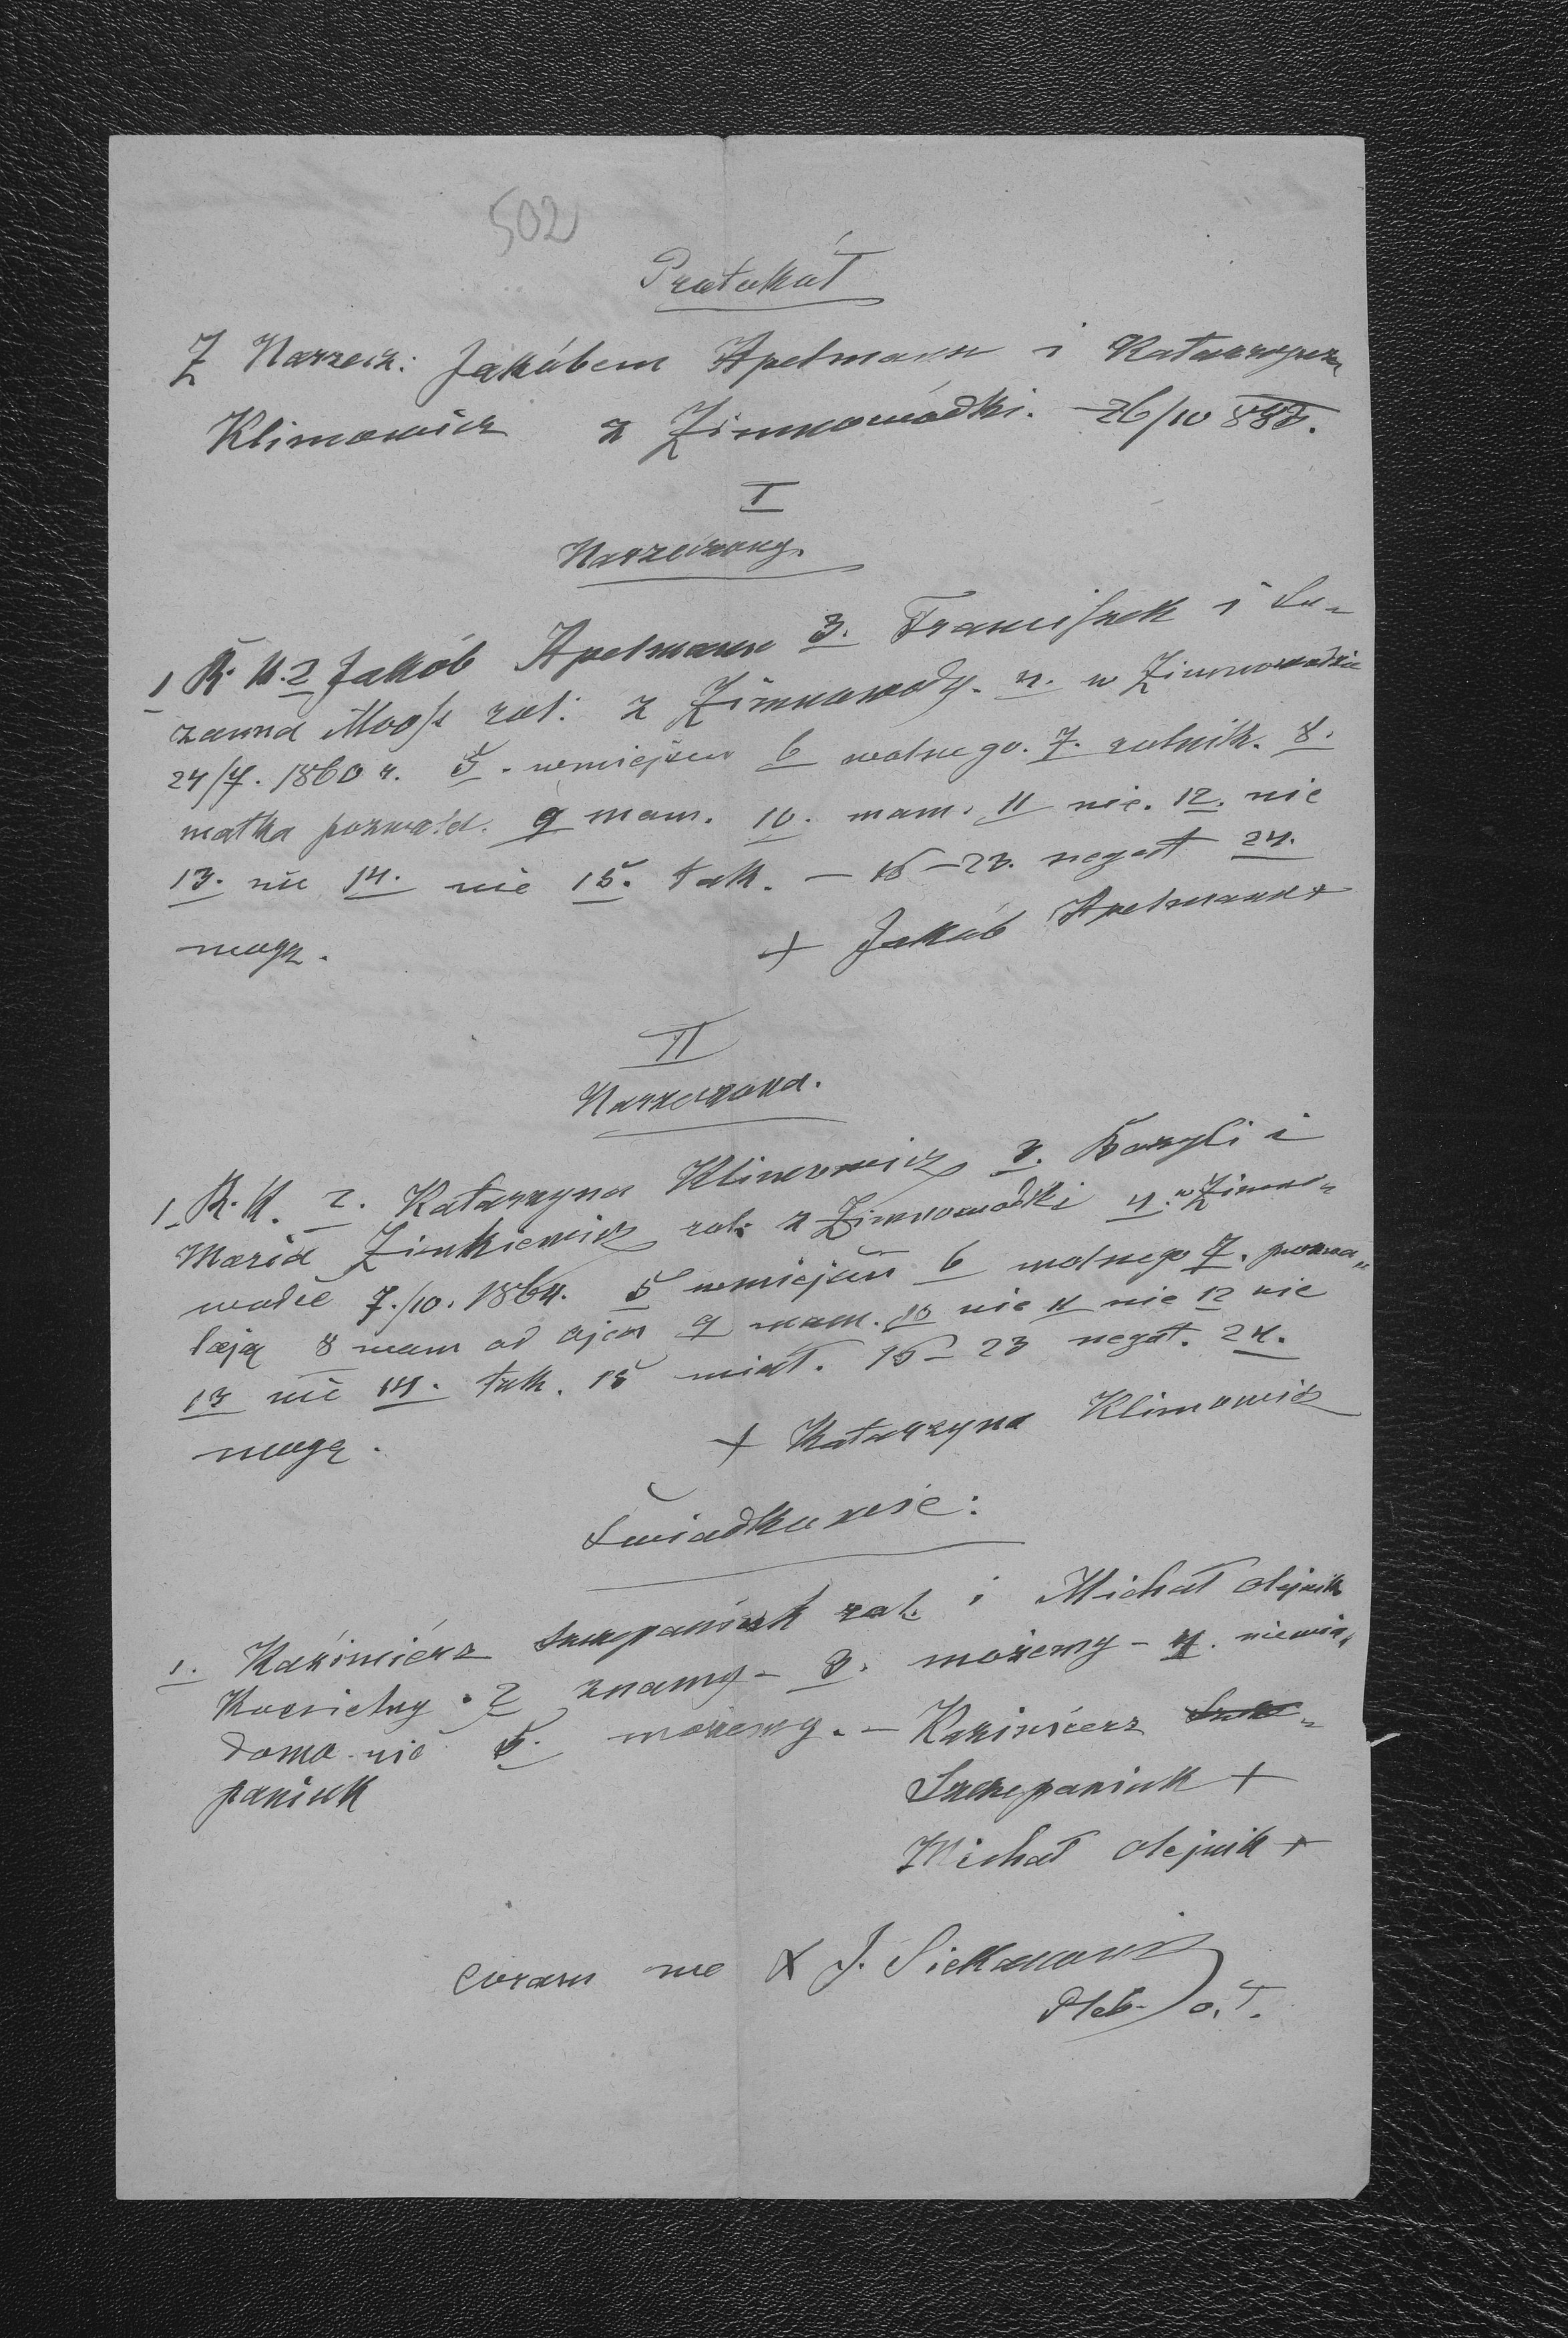 502
Protokół
Z Narzecz: Jakóbem Apelmann i Katarzyną
Klimowicz z Zimnowódki. 26/10 887.
I
Narzeczony.
1 R. K. 2 Jakób Apelmann 3. Franciszek i Zu-
zanna Mooss rol: z Zimnowody. 4. w Zimnowodzie
24/7. 1860 r. 5. w miejscu 6 wolnego. 7. rolnik. 8.
matka pozwala. 9 mam. 10. mam. 11 nie. 12. nie
13. nie 14. nie 15. tak. – 16–23. negat 24.
mogę.
+ Jakób Apelmann +
II
Narzeczona.
1. R. K. 2. Katarzyna Klimowicz 3. Bazyli i
Maria Zinkiewicz rol: z Zimnowódki 4. w Zimno-
wodzie 7./10. 1864. 5 w miejscu 6 wolnego 7. pozwa-
lają 8 mam od ojca 9 mam. 10 nie 11 nie 12 nie
13 nie 14. tak. 15 miał. 16–23 negat. 24.
mogę.
+ Katarzyna Klimowicz
Świadkowie:
1. Kazimierz Szczepaniuk rol. i Michał Olejnik
Kościelny. 2 znamy – 3. możemy – 4. niewia-
domo nic 5. możemy. – Kazimierz Szcze-
paniuk
Szczepaniuk +
Michał Olejnik +
coram me X J. Siekanowicz
Pleb. o. T.